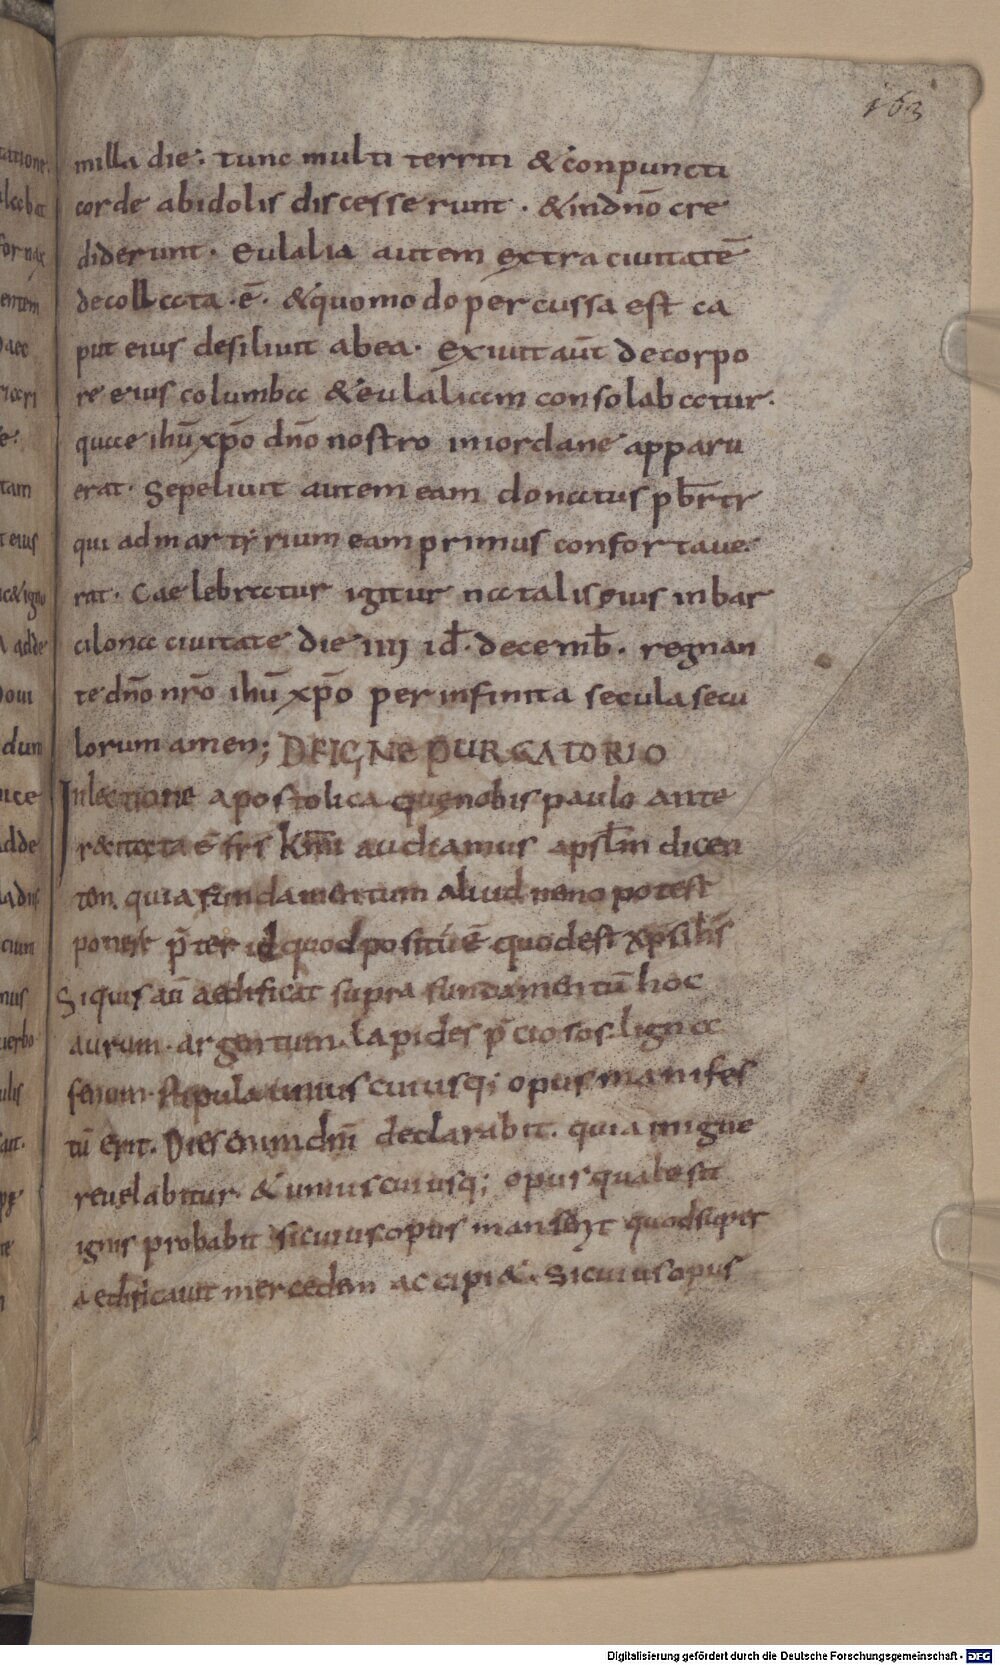 163
milla die; tunc multi territi & conpuncti
corde abidolis discesserunt . & indnō cre
diderunt . eulalia autem extra ciuitatē
decollata . ē . & quomodo percussa est ca
put eius desiliuit abea . exiuit aūt decorpo
re eius columba & eulaliam consolabatur .
quae ihū xp̄o dnō nostro iniordane apparu
erat . Sepeliuit autem eam donatus pb̄rtr
qui admartyrium eam primus confortaue
rat . Caelebratur igitur natalis eius inbar
cilona ciuitate die iiij id̄ . decemb̄ . regnan
te dnō nr̄o ihū xp̄o per infinita secula secu
lorum amen ; DE IGNE PURGATORIO
Inlectione apostolica que nobis paulo ante
r&citata ē fr̄s km̄i audiamus apsl̄m dicen
tem . quia fundamentum aliud nemo potest
ponere p̄ter id quod positū ē quodest xp̄s ih̄s
Siquis aū aedificat supra fundamentū hoc
aurum . argentum . lapides p̄ciosos . ligna
fenum . stipula unius cuiusq; opus manifes
tū erit . Dies enim dnī declarabit . quia inigne
reuelabitur . & unius cuiusq; opus quale sit
ignis probabit sicuius opus manserit quodsuper
aedificauit mercedem accipi& . Sicuius opus
Digitalisierung gefördert durch die Deutsche Forschungsgemeinschaft - DFG